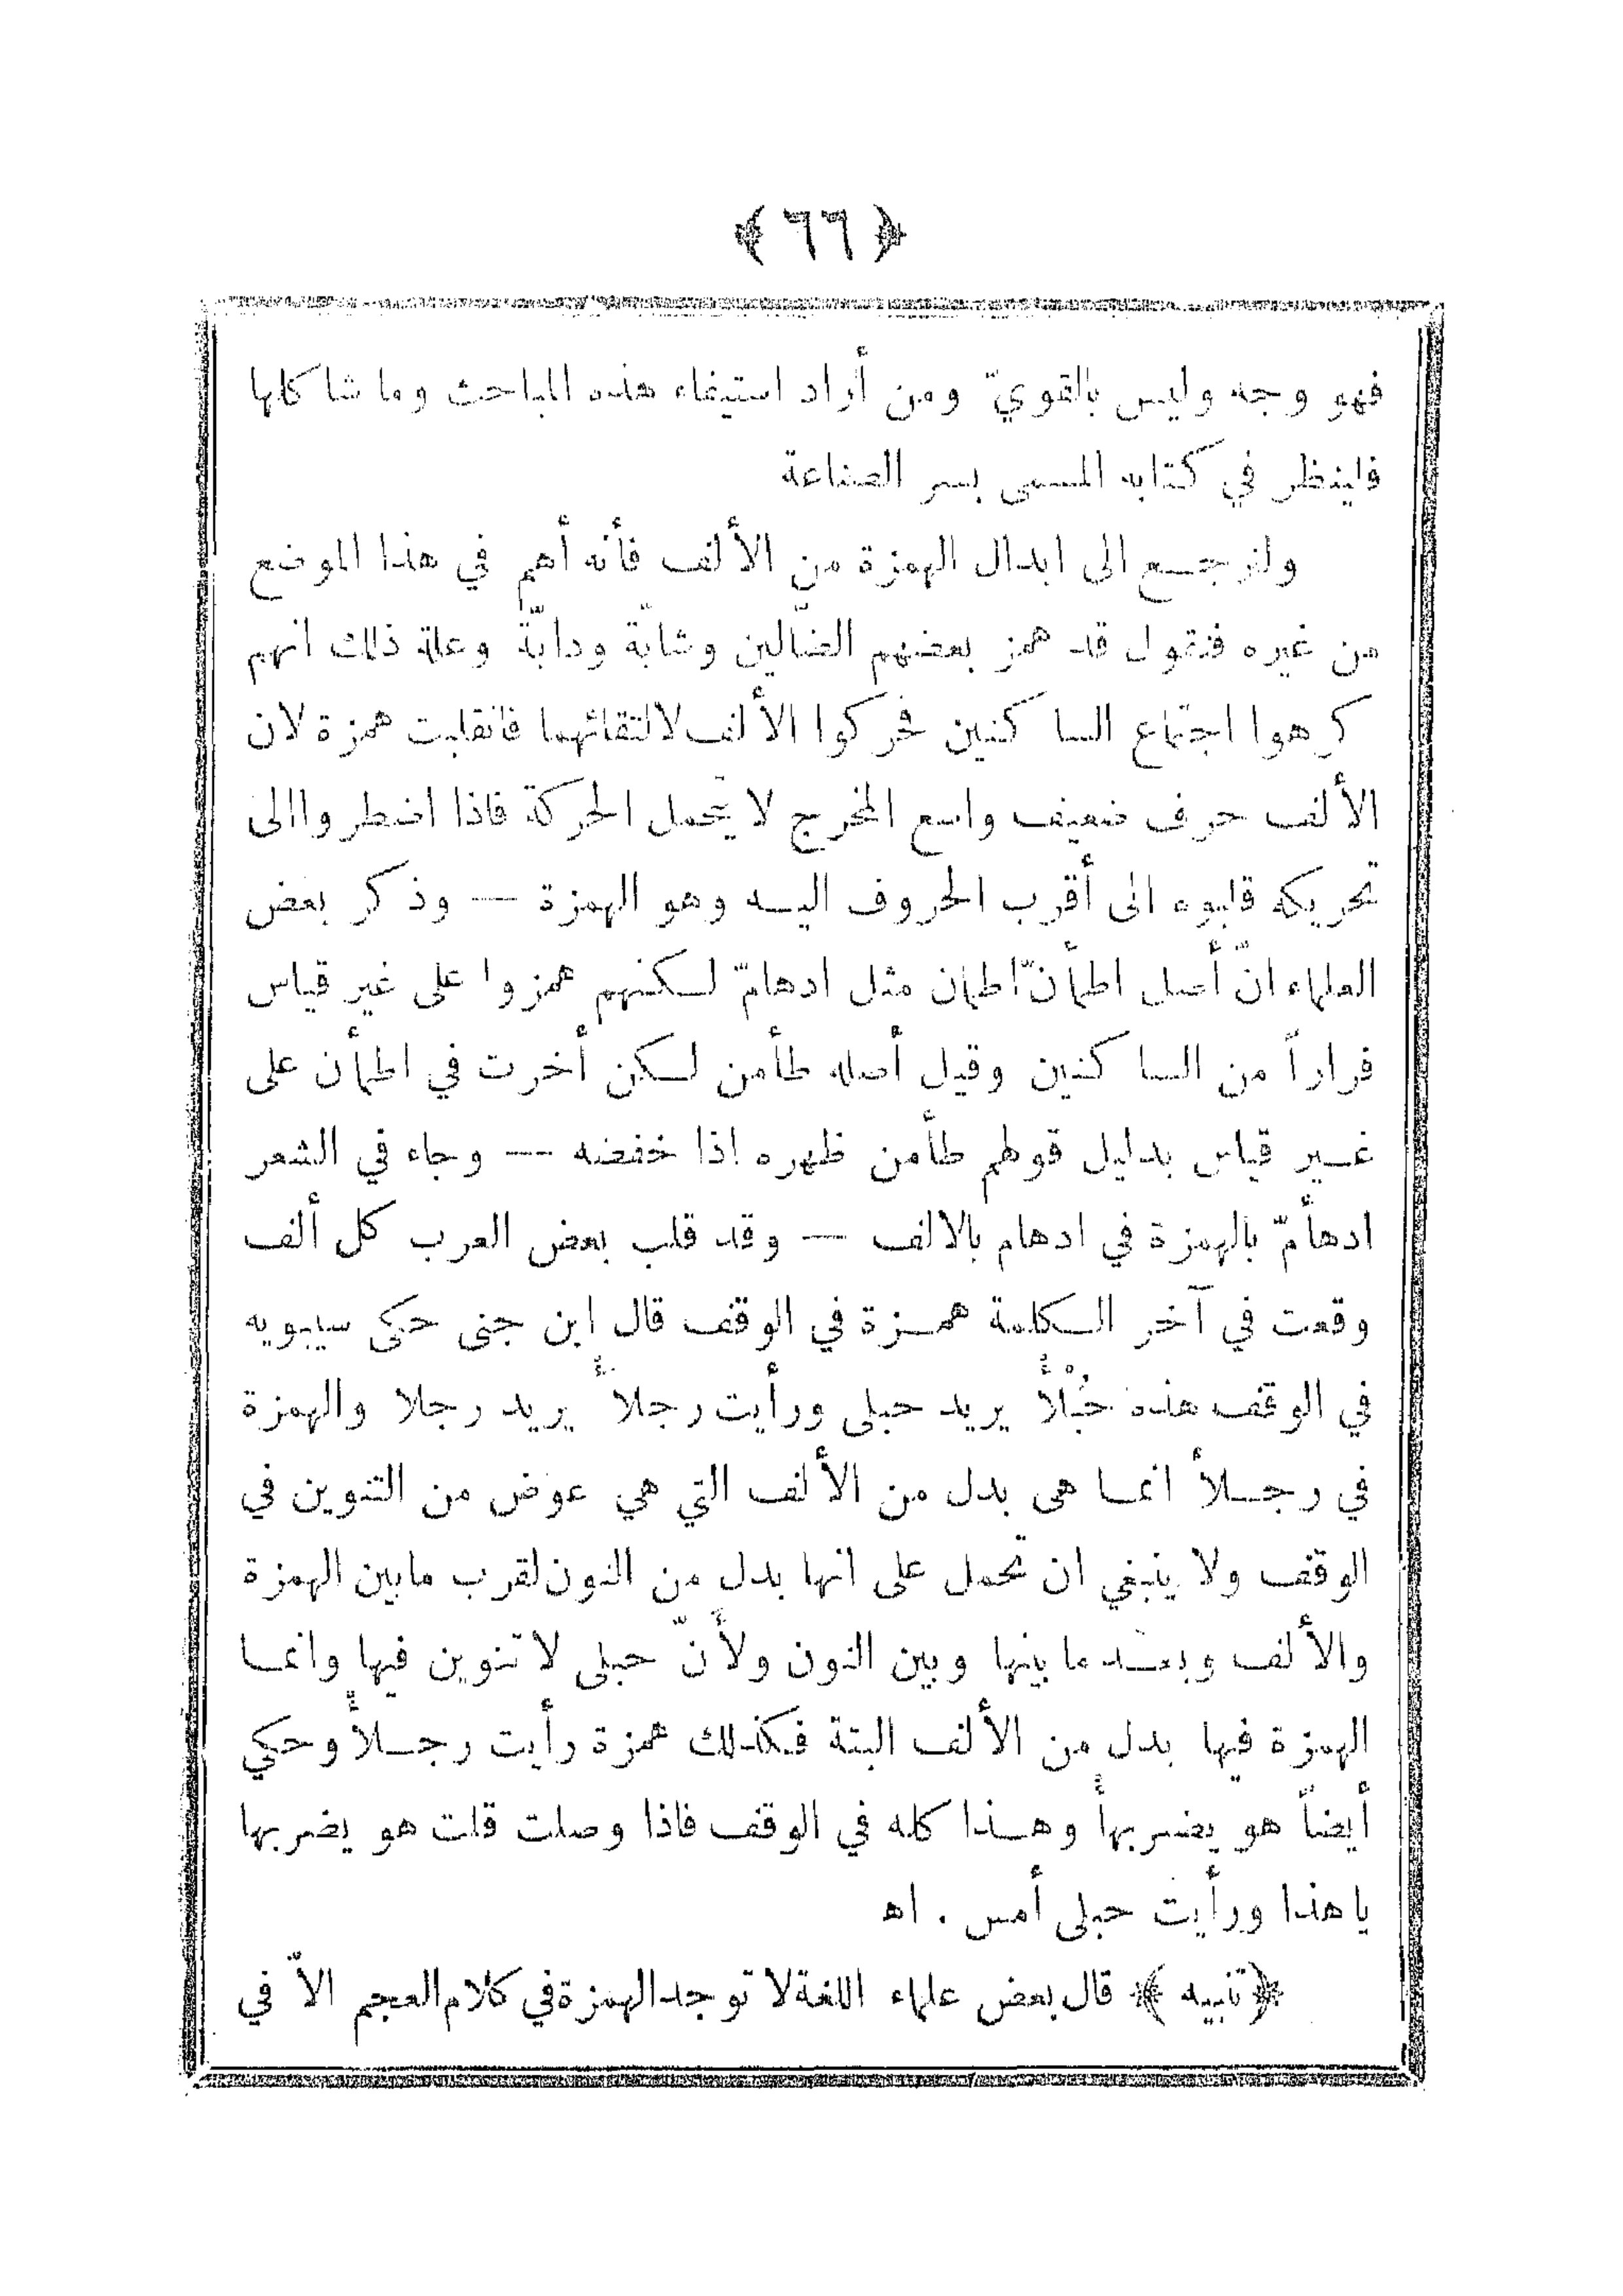 ﴿ ٦٦ ﴾
فهو وجه وليس بالقويّ ومن أراد استيفاء هذه المباحث وما شا كلها
فلينظر في كتابه المسمى بسر الصناعة
ولنرجع الى ابدال الهمزة من الألف فأنه أهم في هذا الموضع
من غيره فنقول قد همز بعضهم الضّالين وشابّة ودابّة وعلة ذلك انهم
كرهوا اجتماع السا كنين فحركوا الألف لالتقائهما فانقلبت همزة لان
الألف حرف ضعيف واسع المخرج لا يحمل الحركة فاذا اضطروا الى
تحريكه قلبوه الى أقرب الحروف اليه وهو الهمزة — وذكر بعض
العلماء انّ أصل اطمأنّ اطمان مثل ادهامّ لكنهم همزوا على غير قياس
فراراً من السا كنين وقيل أصله طأمن لكن أخرت في اطمأن على
غير قياس بدليل قولهم طأمن ظهره اذا خفضه — وجاء في الشعر
ادهأمّ بالهمزة في ادهام بالالف — وقد قلب بعض العرب كل ألف
وقعت في آخر الكلمة همزة في الوقف قال ابن جنى حكى سيبويه
في الوقف هذه حُبْلأٌ يريد حبلى ورأيت رجلأً يريد رجلا والهمزة
في رجلأ انما هى بدل من الألف التي هي عوض من التنوين في
الوقف ولا ينبغي ان تحمل على انها بدل من النون لقرب مابين الهمزة
والألف وبعد ما بينها وبين النون ولأنّ حبلى لا تنوين فيها وانما
الهمزة فيها بدل من الألف البتة فكذلك همزة رأيت رجلأً وحكي
أيضاً هو يضربهأ وهذا كله في الوقف فاذا وصلت قلت هو يضربها
يا هذا ورأيت حبلى أمس . اه
﴿ تنبيه ﴾ قال بعض علماء اللغة لا توجد الهمزة في كلام العجم الاّ في